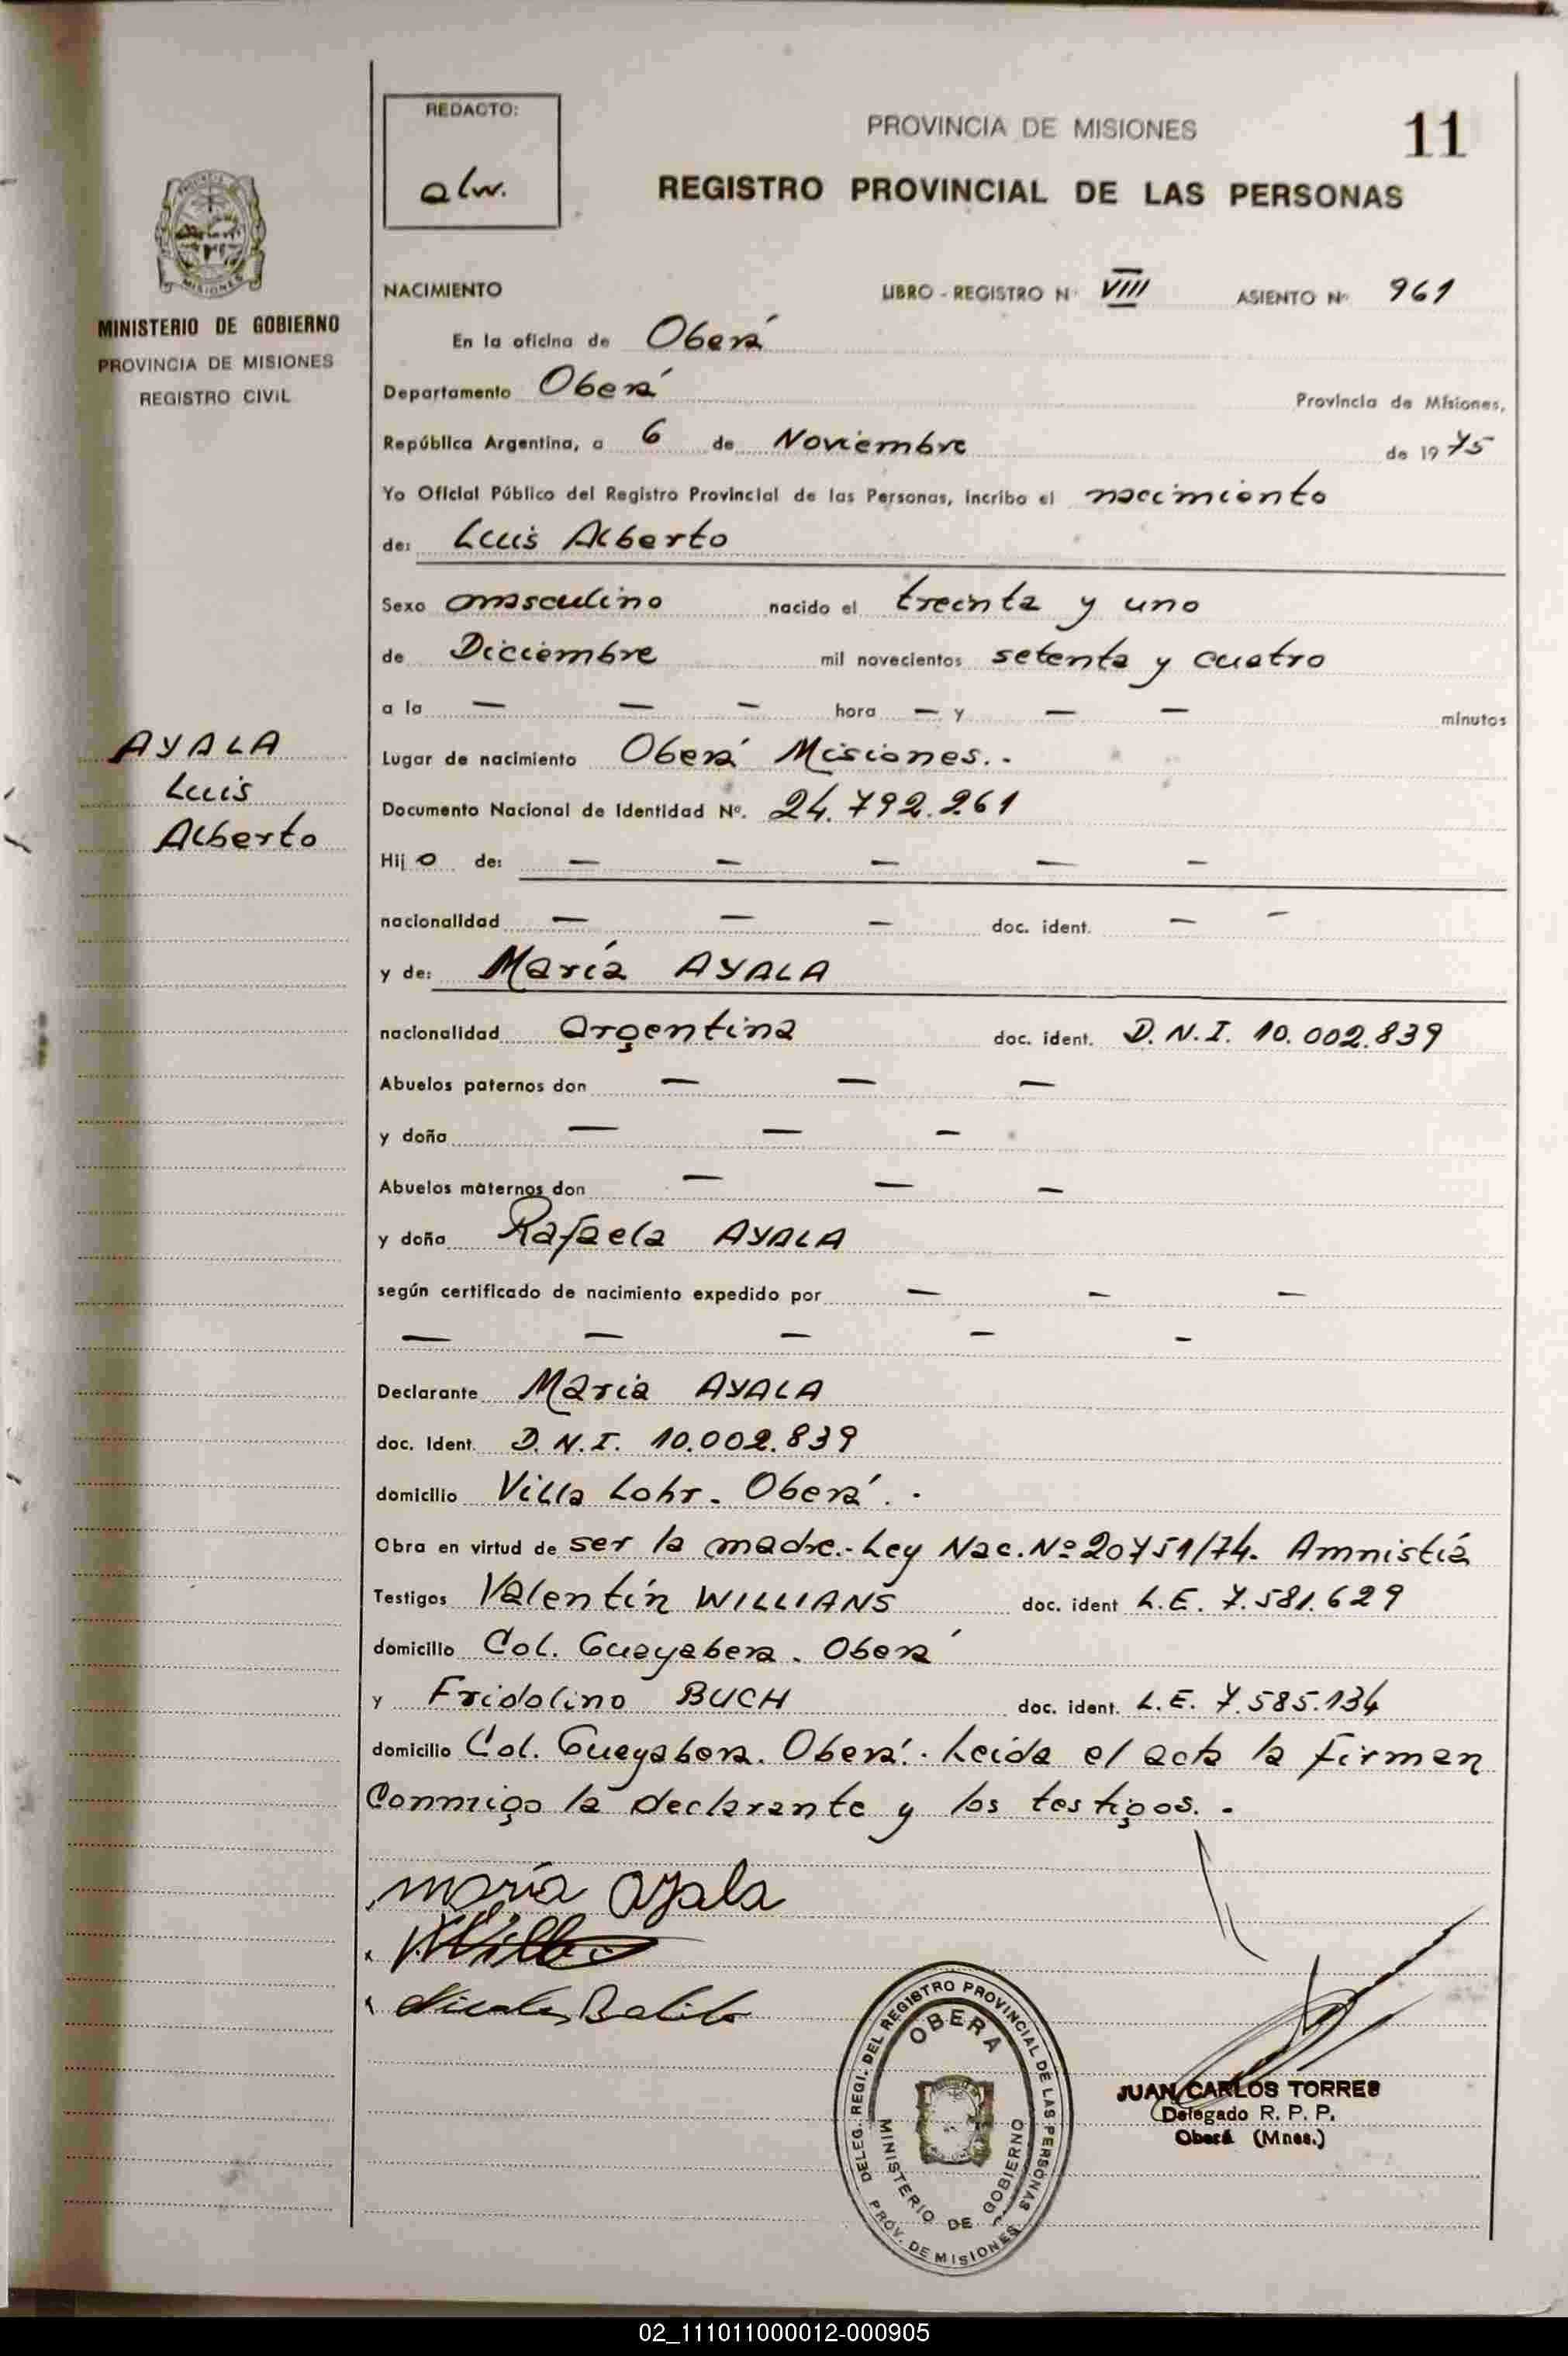 REDACTO:
alw.
PROVINCIA DE MISIONES
11
REGISTRO PROVINCIAL DE LAS PERSONAS
MISIONES
MINISTERIO DE GOBIERNO
PROVINCIA DE MISIONES
REGISTRO CIVIL
NACIMIENTO LIBRO - REGISTRO Nº VIII ASIENTO Nº 961
En la oficina de Oberá
Departamento Oberá Provincia de Misiones,
República Argentina, a 6 de Noviembre de 1975
Yo Oficial Público del Registro Provincial de las Personas, incribo el nacimiento
de: Luis Alberto
Sexo masculino nacido el treinta y uno
de Diciembre mil novecientos setenta y cuatro
a la — — — hora — y — — minutos
AYALA
Luis
Alberto
Lugar de nacimiento Oberá Misiones.-
Documento Nacional de Identidad Nº. 24.792.261
Hijo de: — — — — —
nacionalidad — — — doc. ident. — —
y de: María AYALA
nacionalidad argentina doc. ident. D.N.I. 10.002.839
Abuelos paternos don — — —
y doña — — —
Abuelos maternos don — — —
y doña Rafaela AYALA
según certificado de nacimiento expedido por — — —
— — — — —
Declarante María AYALA
doc. Ident. D.N.I. 10.002.839
domicilio Villa Lohr. Oberá.-
Obra en virtud de ser la madre.- Ley Nac. Nº 20751/74. Amnistía
Testigos Valentín WILLIANS doc. ident L.E. 7.581.629
domicilio Col. Guayabera. Oberá
y Fridolino BUCH doc. ident. L.E. 7.585.134
domicilio Col. Guayabera. Oberá.- Leída el acta la firman
conmigo la declarante y los testigos.-
maría ayala
DELEG. REGI. DEL REGISTRO PROVINCIAL DE LAS PERSONAS
OBERA
MINISTERIO DE GOBIERNO
PROV. DE MISIONES
JUAN CARLOS TORRES
Delegado R. P. P.
Oberá (Mnes.)
02_111011000012-000905